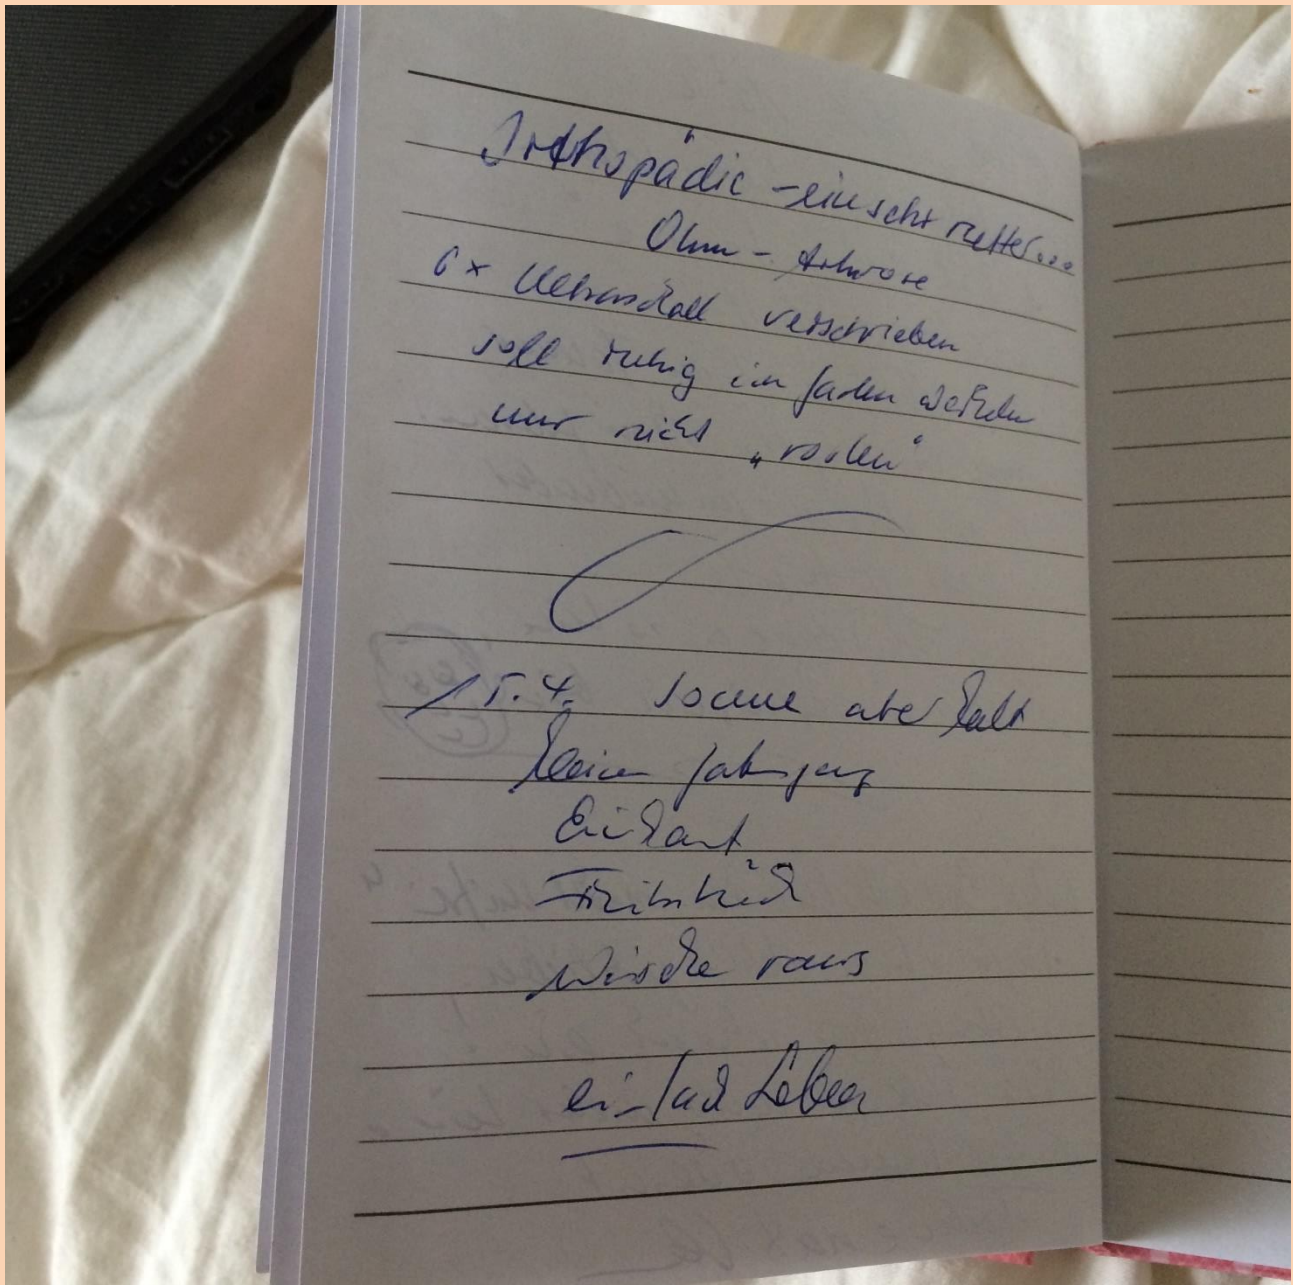 Orthopädie – ein sehr netter...
Arthrose
6x Ultraschall verschrieben
soll ruhig im Garten arbeiten
nur nicht „rasten“
15.4. Sonne aber kalt
kleiner
Einkauf
Frühstück
Wäsche raus
einfach Leben